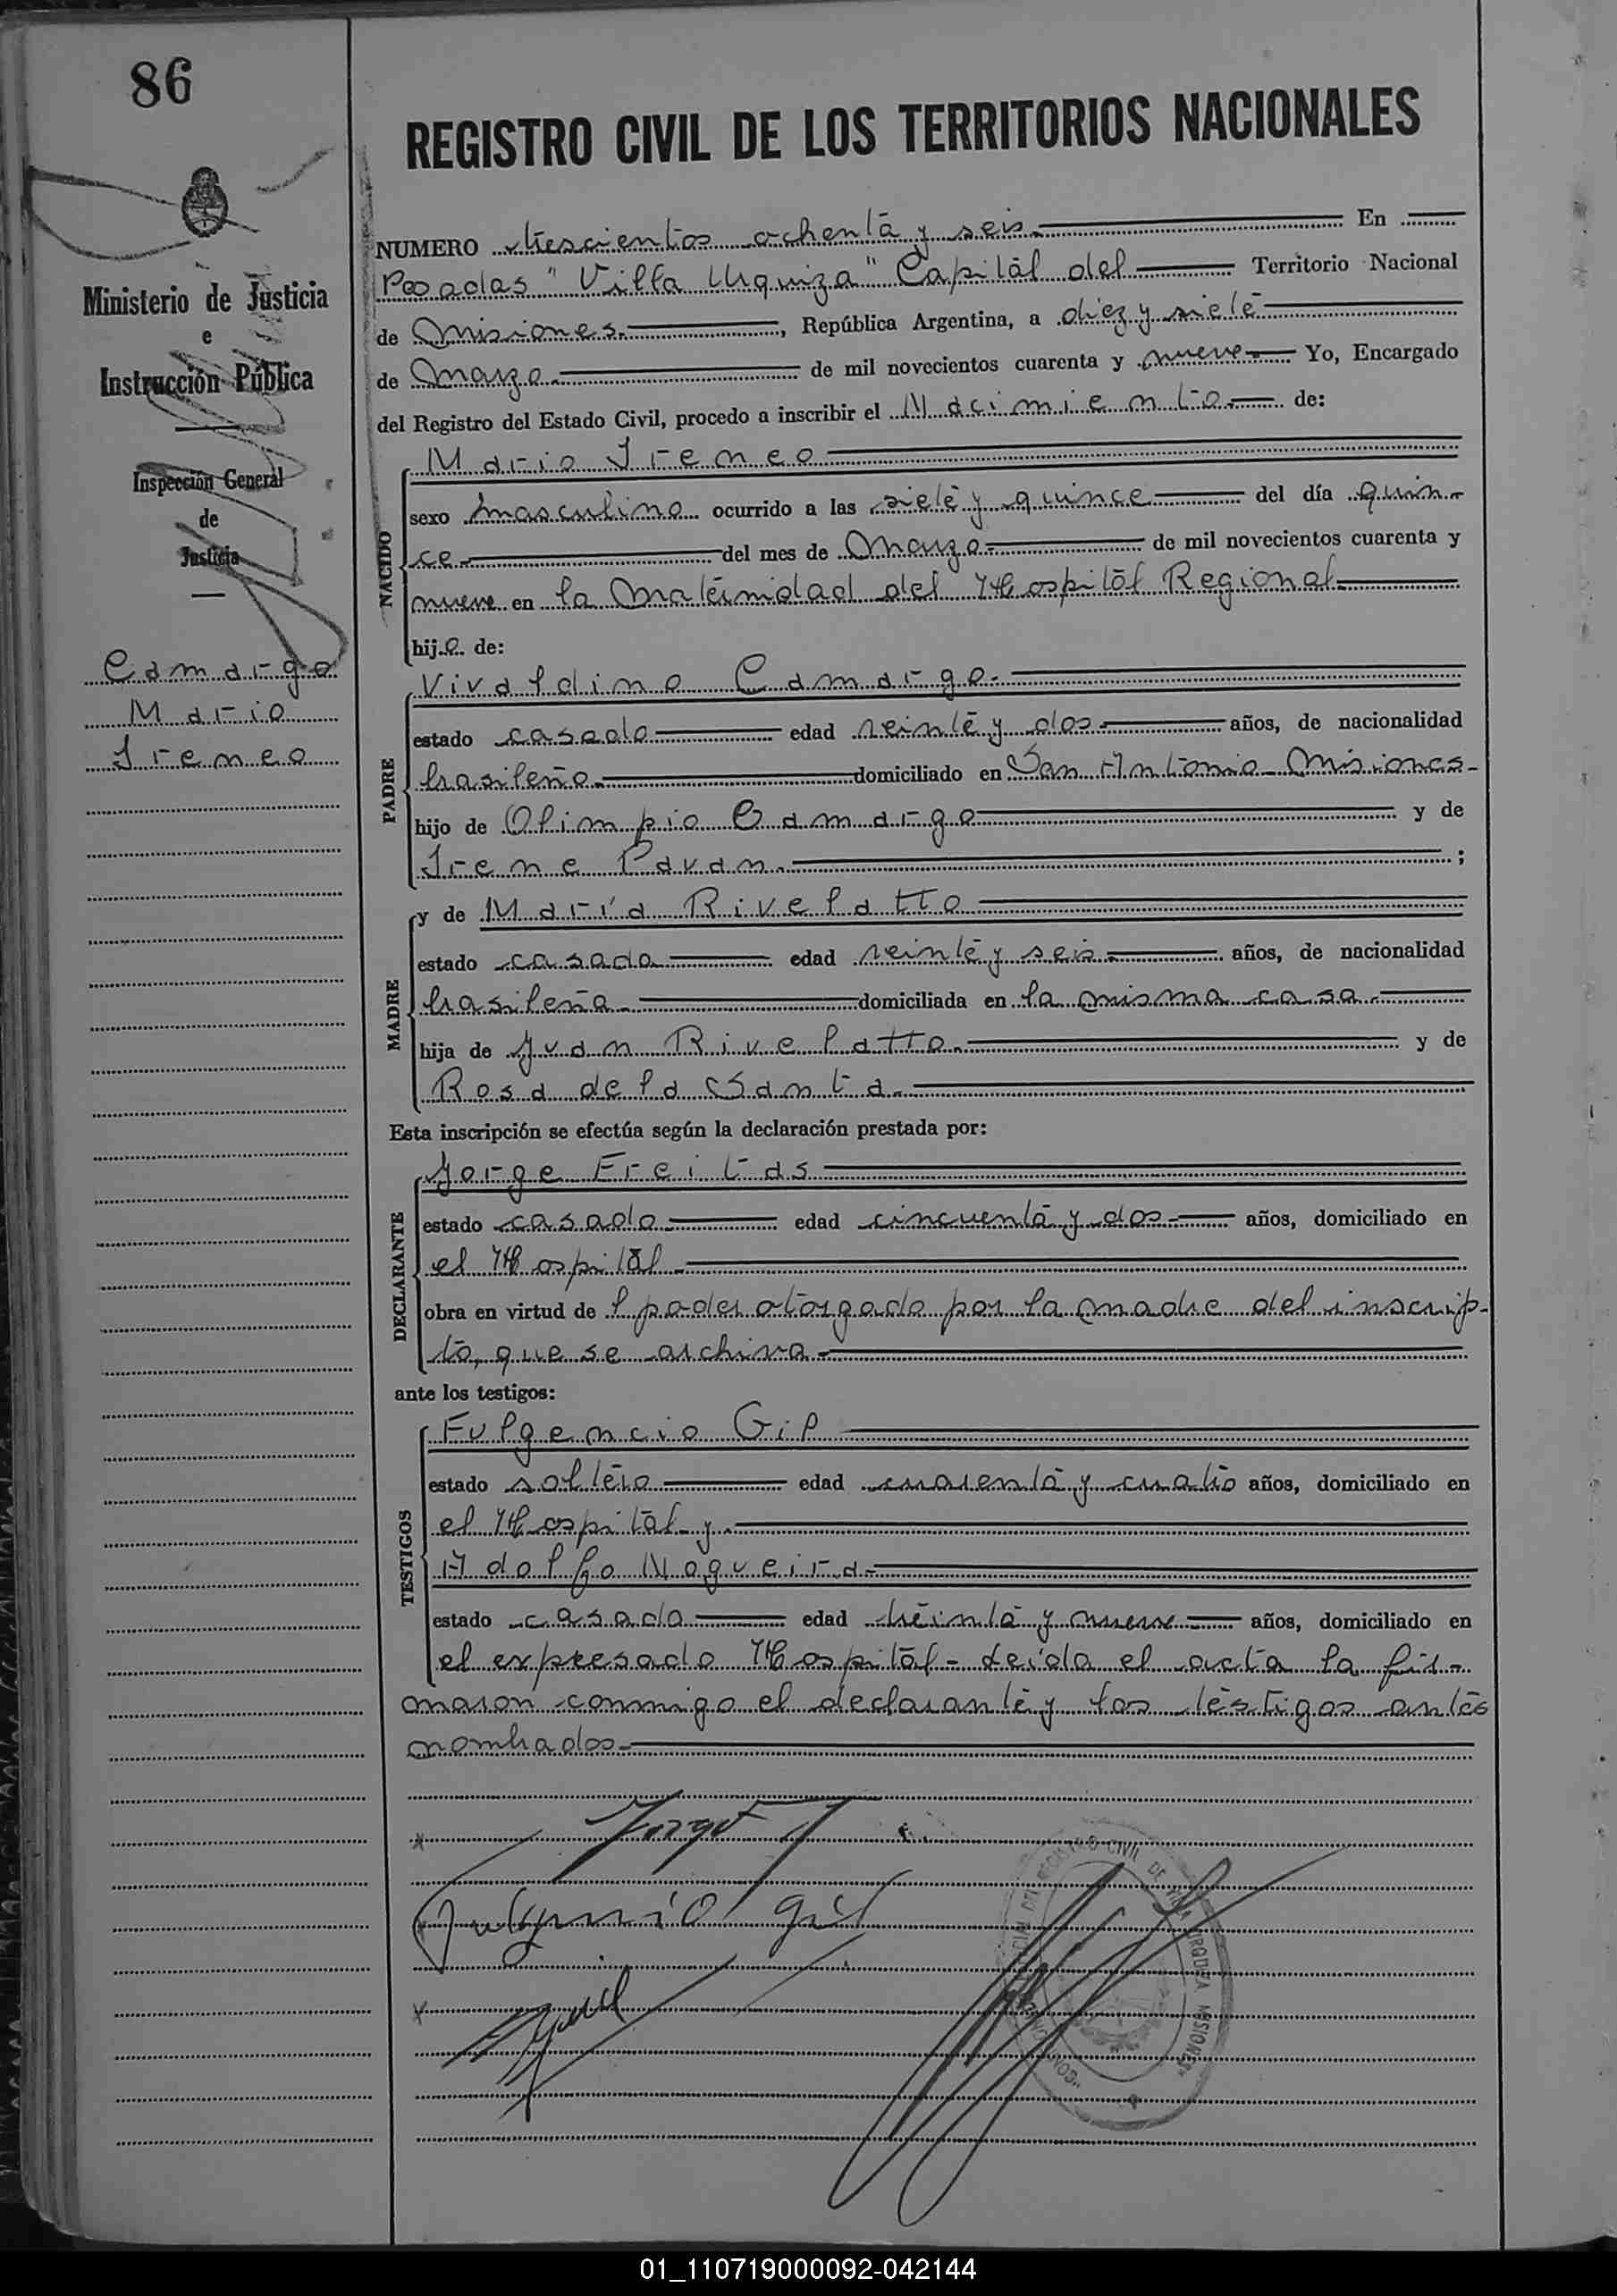 86
REGISTRO CIVIL DE LOS TERRITORIOS NACIONALES
Ministerio de Justicia
e
Instrucción Pública
Inspección General
de
Justicia
Camargo
Mario
Ireneo
NUMERO trescientos ochenta y seis.— En
Posadas "Villa Urquiza" Capital del — Territorio Nacional
de Misiones.—, República Argentina, a diez y siete
de Marzo.— de mil novecientos cuarenta y nueve.— Yo, Encargado
del Registro del Estado Civil, procedo a inscribir el Nacimiento.— de:
NACIDO
Mario Ireneo
sexo masculino ocurrido a las siete y quince — del día quin-
ce.— del mes de Marzo.— de mil novecientos cuarenta y
nueve en la Maternidad del Hospital Regional.—
hijo de:
PADRE
Vivaldino Camargo.—
estado casado — edad veinte y dos.— años, de nacionalidad
brasileño.— domiciliado en San Antonio Misiones-
hijo de Olimpio Camargo — y de
Irene Pavan.— ;
MADRE
y de María Rivelatto
estado casada — edad veinte y seis.— años, de nacionalidad
brasileña.— domiciliada en la misma casa.—
hija de Juan Rivelatto.— y de
Rosa de la Santa.—
Esta inscripción se efectúa según la declaración prestada por:
DECLARANTE
Jorge Freitas
estado casado — edad cincuenta y dos.— años, domiciliado en
el Hospital.—
obra en virtud de l poder otorgado por la madre del inscrip-
to, que se archiva.—
ante los testigos:
TESTIGOS
Fulgencio Gil
estado soltero — edad cuarenta y cuatro años, domiciliado en
el Hospital y.—
Adolfo Nogueira.—
estado casado — edad treinta y nueve — años, domiciliado en
el expresado Hospital - Leída el acta la fir-
maron conmigo el declarante y los testigos antes
nombrados.—
Jorge F
Fulgencio Gil
REGISTRO CIVIL DE VILLA URQUIZA MISIONES
01_110719000092-042144